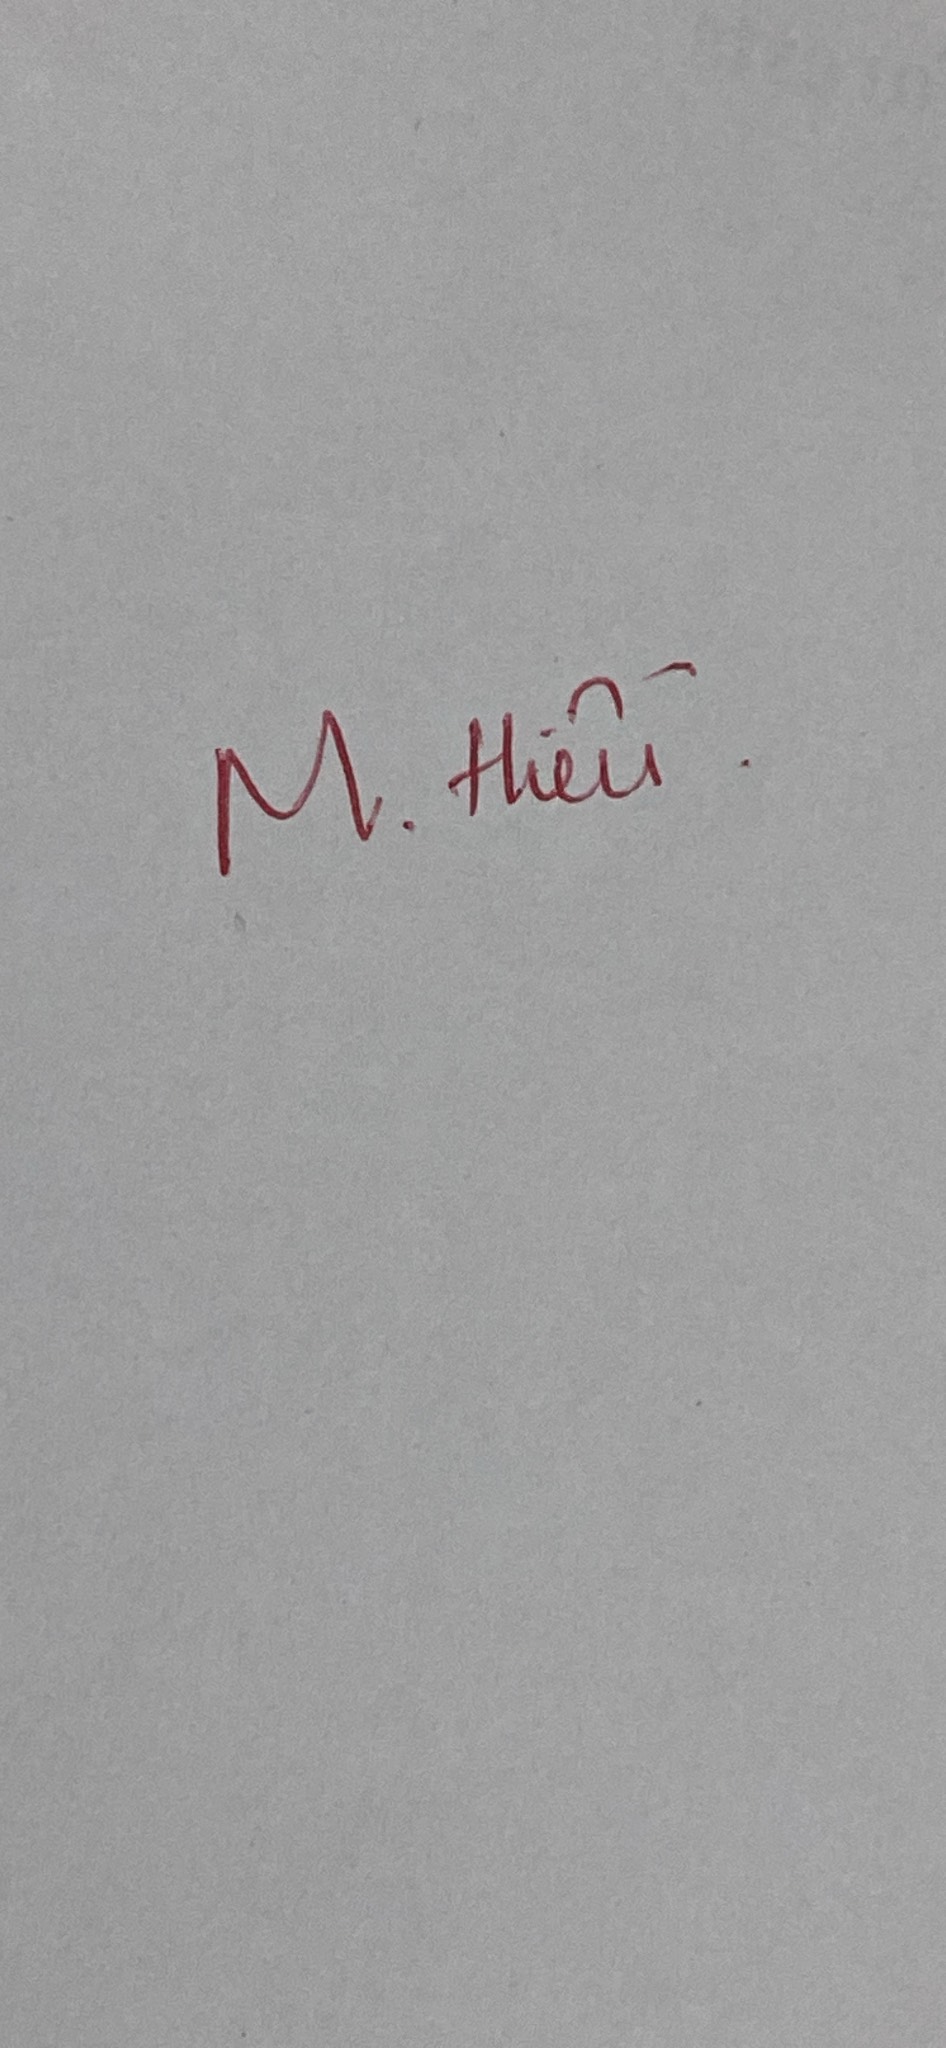 M. Hiếu .